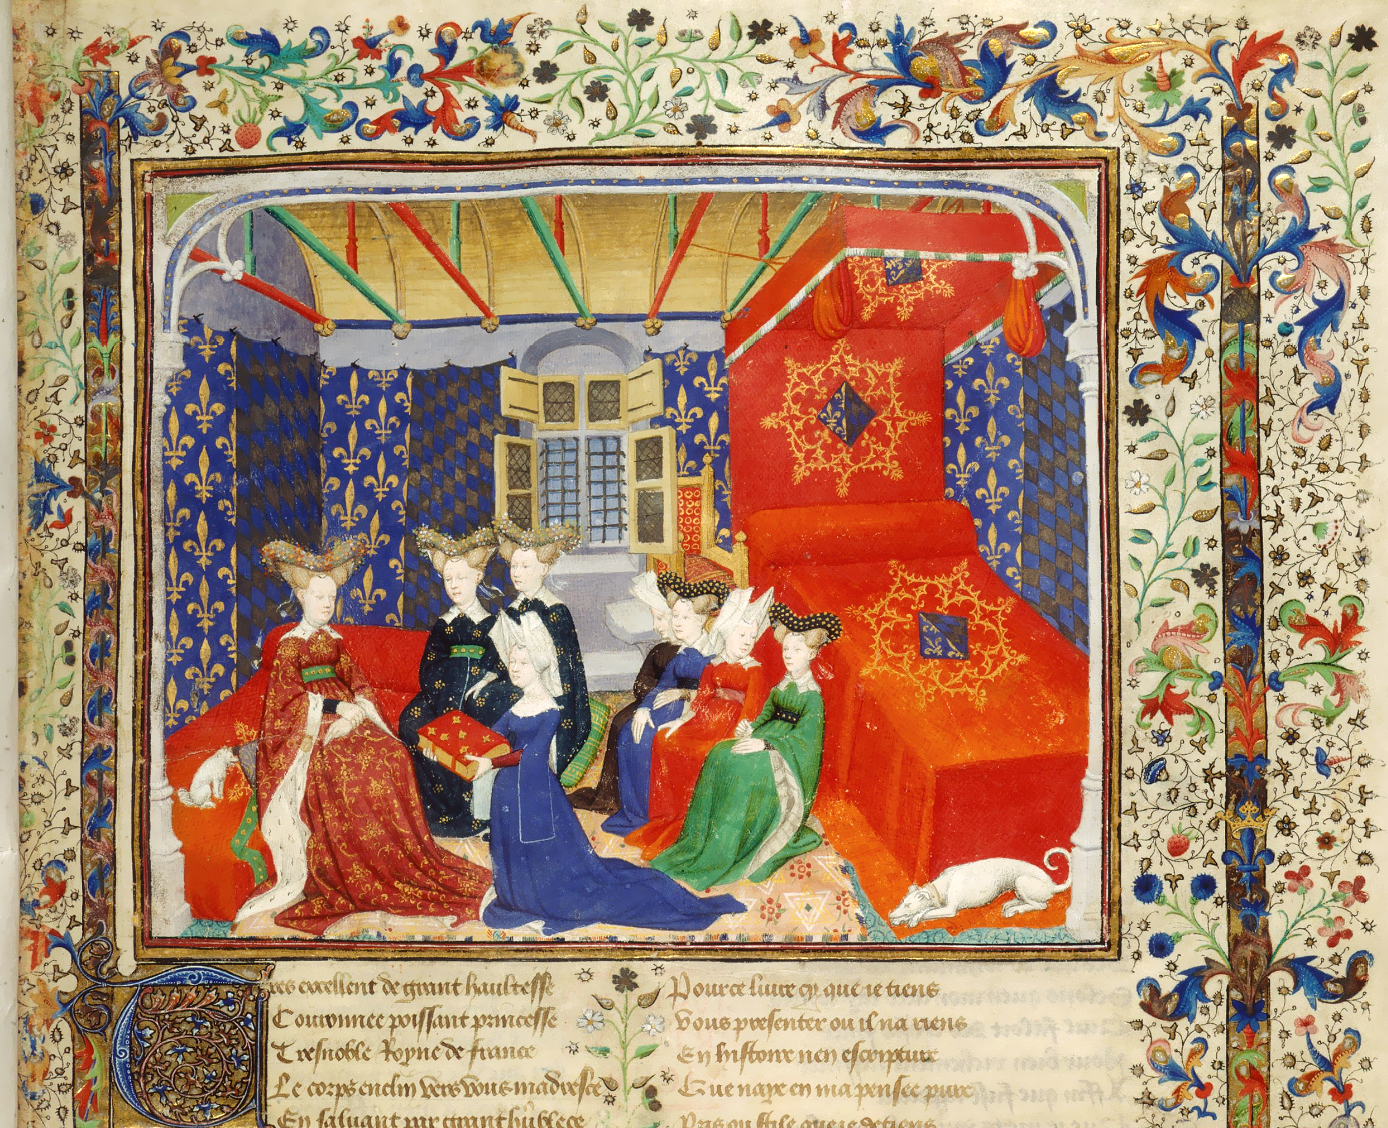 Tres excellent de grant haultesse
Couronnee poissant princesse
Tresnoble Royne de france
Le corps enclin vers vous madresce
En saluant par grant humblece
Pour ce livre cy que ie tiens
Vous presenter ou il na riens
En histoire nen escripture
Que naye en ma pensee pure
Pris ou stile que ie detiens